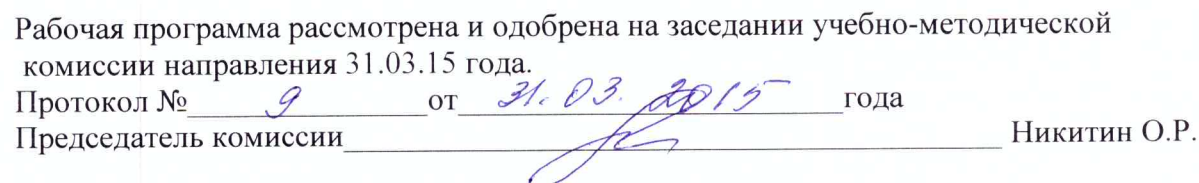 Рабочая программа рассмотрена и одобрена на заседании учебно-методической
комиссии направления 31.03.15 года.
Протокол № 9 от 31.03.2015 года
Председатель комиссии Никитин О.Р.